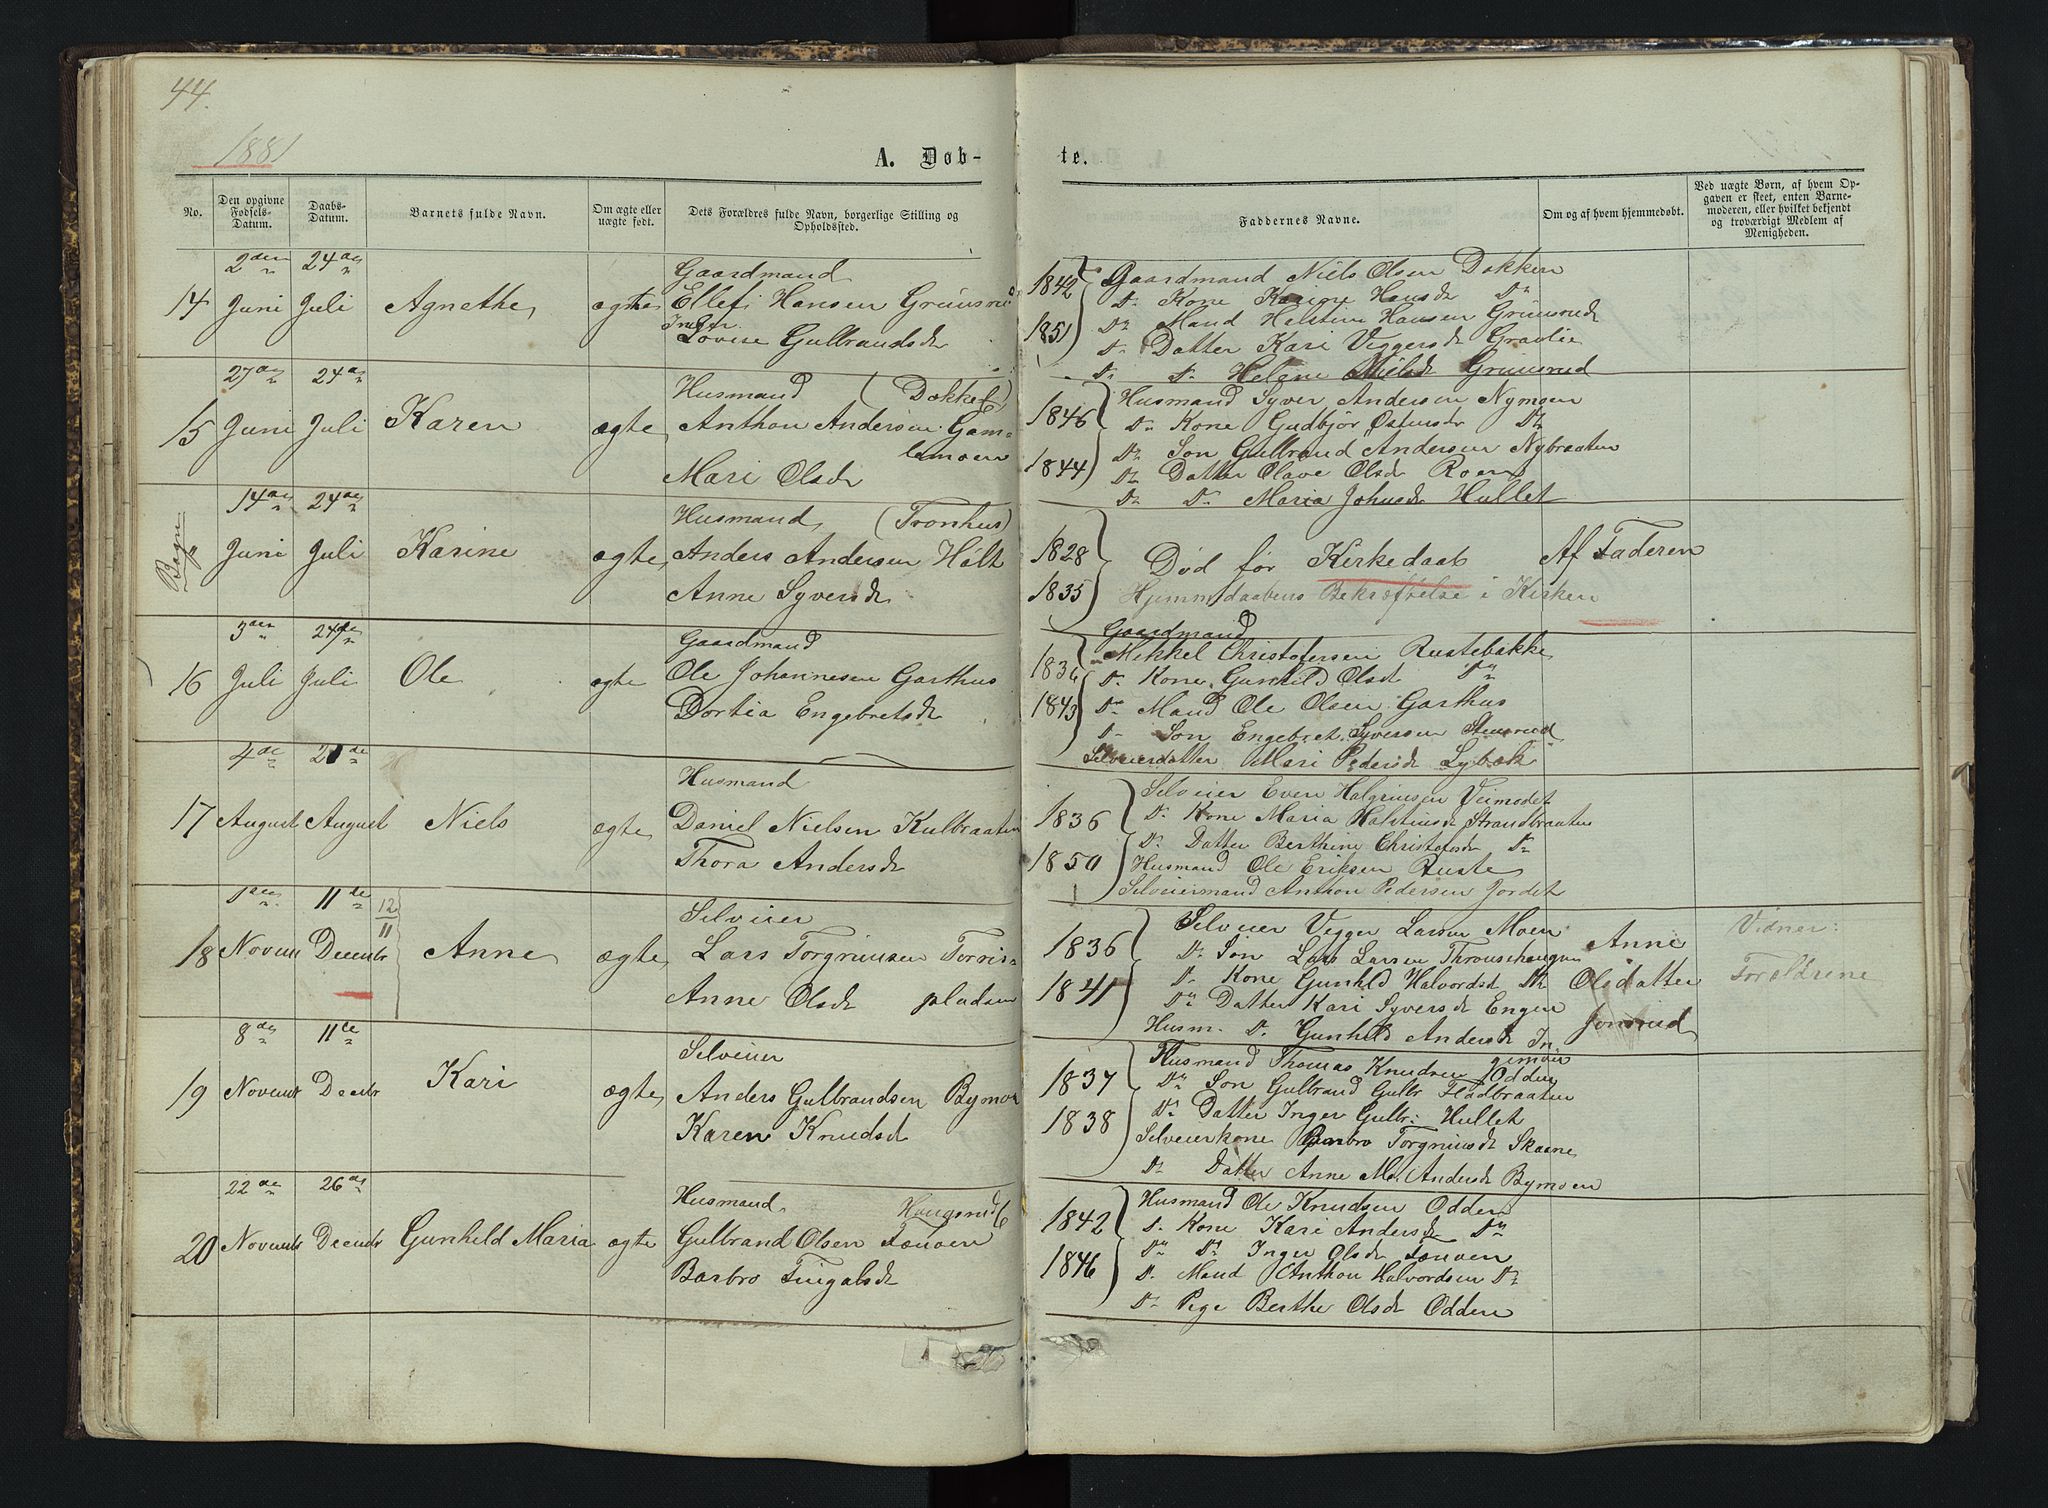 44.
1881
A. Døb-
te.
No.
Den opgivne Fødsels-Datum.
Daabs-Datum.
Barnets fulde Navn.
Om ægte eller uægte født.
Dets Forældres fulde Navn, borgerlige Stilling og Opholdssted.
Faddernes Navne.
Om og af hvem hjemmedøbt.
Ved uægte Børn, af hvem Opgaven er skeet, enten Barnemoderen, eller hvilket bekjendt og troværdigt Medlem af Menigheden.
14
2den Juni
24de Juli
Agnethe
ægte
Gaardmand
Ellef Hansen Grimsrud
Inger
Lovise Gulbrandsdr
1842
1851
Gaardmand Niels Olsen Dokken
Do Kone Karine Hansdr Do
Do Mand Halstin Hansen Grimsrud
Do Datter Kari Viggersdr Gravlie
Do Do Helene Nielsdr Grimsrud
15
27de Juni
24de Juli
Karen
ægte
Husmand (Dokken)
Anthon Andersen Gam-
lemoen
Mari Olsdr
1846
1844
Husmand Syver Andersen Nymoen
Do Kone Gudbjør Østensdr Do
Do Søn Gulbrand Andersen Nybraaten
Do Datter Olave Olsdr Roen
Do Do Maria Johnsdr Hullet
Bagn
14de Juni
24de Juli
Karine
ægte
Husmand (Tronhus)
Anders Andersen Holt
Anne Syversdr
1828
1835
Død før Kirkedaab
Hjemmedaabens Bekræftelse i Kirken
Af Faderen
16
3den Juli
24de Juli
Ole
ægte
Gaardmand
Ole Johannesen Garthus
Dortia Engebretsdr
1836
1843
Gaardmand
Mikkel Christofersen Rustebakke
Do Kone Gunhild Olsdr Do
Do Mand Ole Olsen Garthus
Do Søn Engebret Syversen Stensrud
Selveierdatter Mari Pedersdr Lybæk
17
4de August
21de August
Niels
ægte
Husmand
Daniel Nielsen Kulbraaten
Thora Andersdr
1836
1850
Selveier Even Halgrimsen Veimodet
Do Kone Maria Halstensdr Strandbraaten
Do Datter Berthine Christofersdr Do
Husmand Ole Eriksen Ruste
Selveiermand Anthon Pedersen Jordet
18
1ste Novem
11de Decembr
12
11
Anne
ægte
Selveier
Lars Torgrimsen Torris-
Anne Olsdr pladsen
1836
1841
Selveier Vegger Larsen Moen
Do Søn Lars Larsen Thronsehaugen
Do Kone Gunhld Halvordsdr Do
Do Datter Kari Syversdr Engen
Husm. Do Gunhild Andersdr In-
gemoen
Anne
Olsdatter
Jonsrud
Vidner:
Forældrene
19
8de Novembr
11te Decembr
Kari
ægte
Selveier
Anders Gulbrandsen Bymoen
Karen Knudsdr
1837
1838
Husmand Thomas Knudsen Odden
Do Søn Gulbrand Gulbr Fladbraaten
Do Datter Inger Gulbr: Hullet
Selveierkone Barbro Torgrimsdr Skaane
Do Datter Anne M. Andersdr Bymoen
20
22de Novembr
26de Decembr
Gunhild Maria
ægte
Husmand Haugsrud
Gulbrand Olsen Tonven
Barbro Tingalsdr
1842
1846
Husmand Ole Knudsen Odden
Do Kone Kari Andersdr Do
Do Do Inger Olsdr Tonven
Do Mand Anthon Halvordsen Do
Do Pige Berthe Olsdr Odden